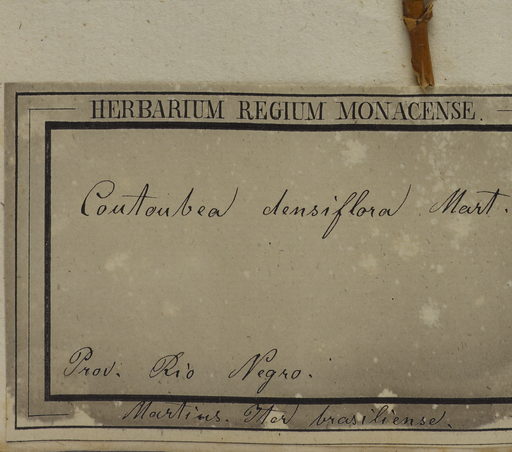 HERBARIUM REGIUM MONACENSE.
Coutoubea densiflora Mart.
Prov. Rio Negro.
Martius. Iter brasiliense.